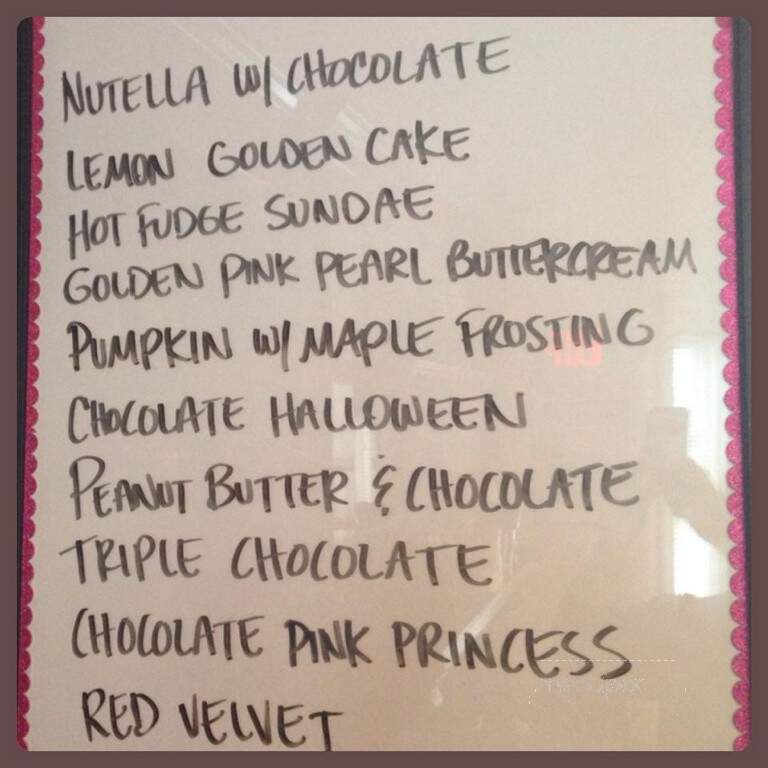 NUTELLA W/ CHOCOLATE
LEMON GOLDEN CAKE
HOT FUDGE SUNDAE
GOLDEN PINK PEARL BUTTERCREAM
PUMPKIN W/ MAPLE FROSTING
CHOCOLATE HALLOWEEN
PEANUT BUTTER & CHOCOLATE
TRIPLE CHOCOLATE
CHOCOLATE PINK PRINCESS
RED VELVET